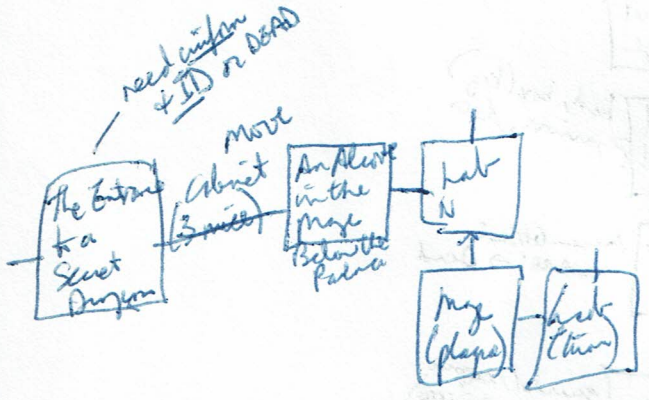 need uniform
+ ID or DEAD
The Entrance
to a
Secret
Dungeon
Move
Cabinet
(3 mice)
An Alcove
in the
Maze
Below the
Palace
Lab
N
Maze
(plaza)